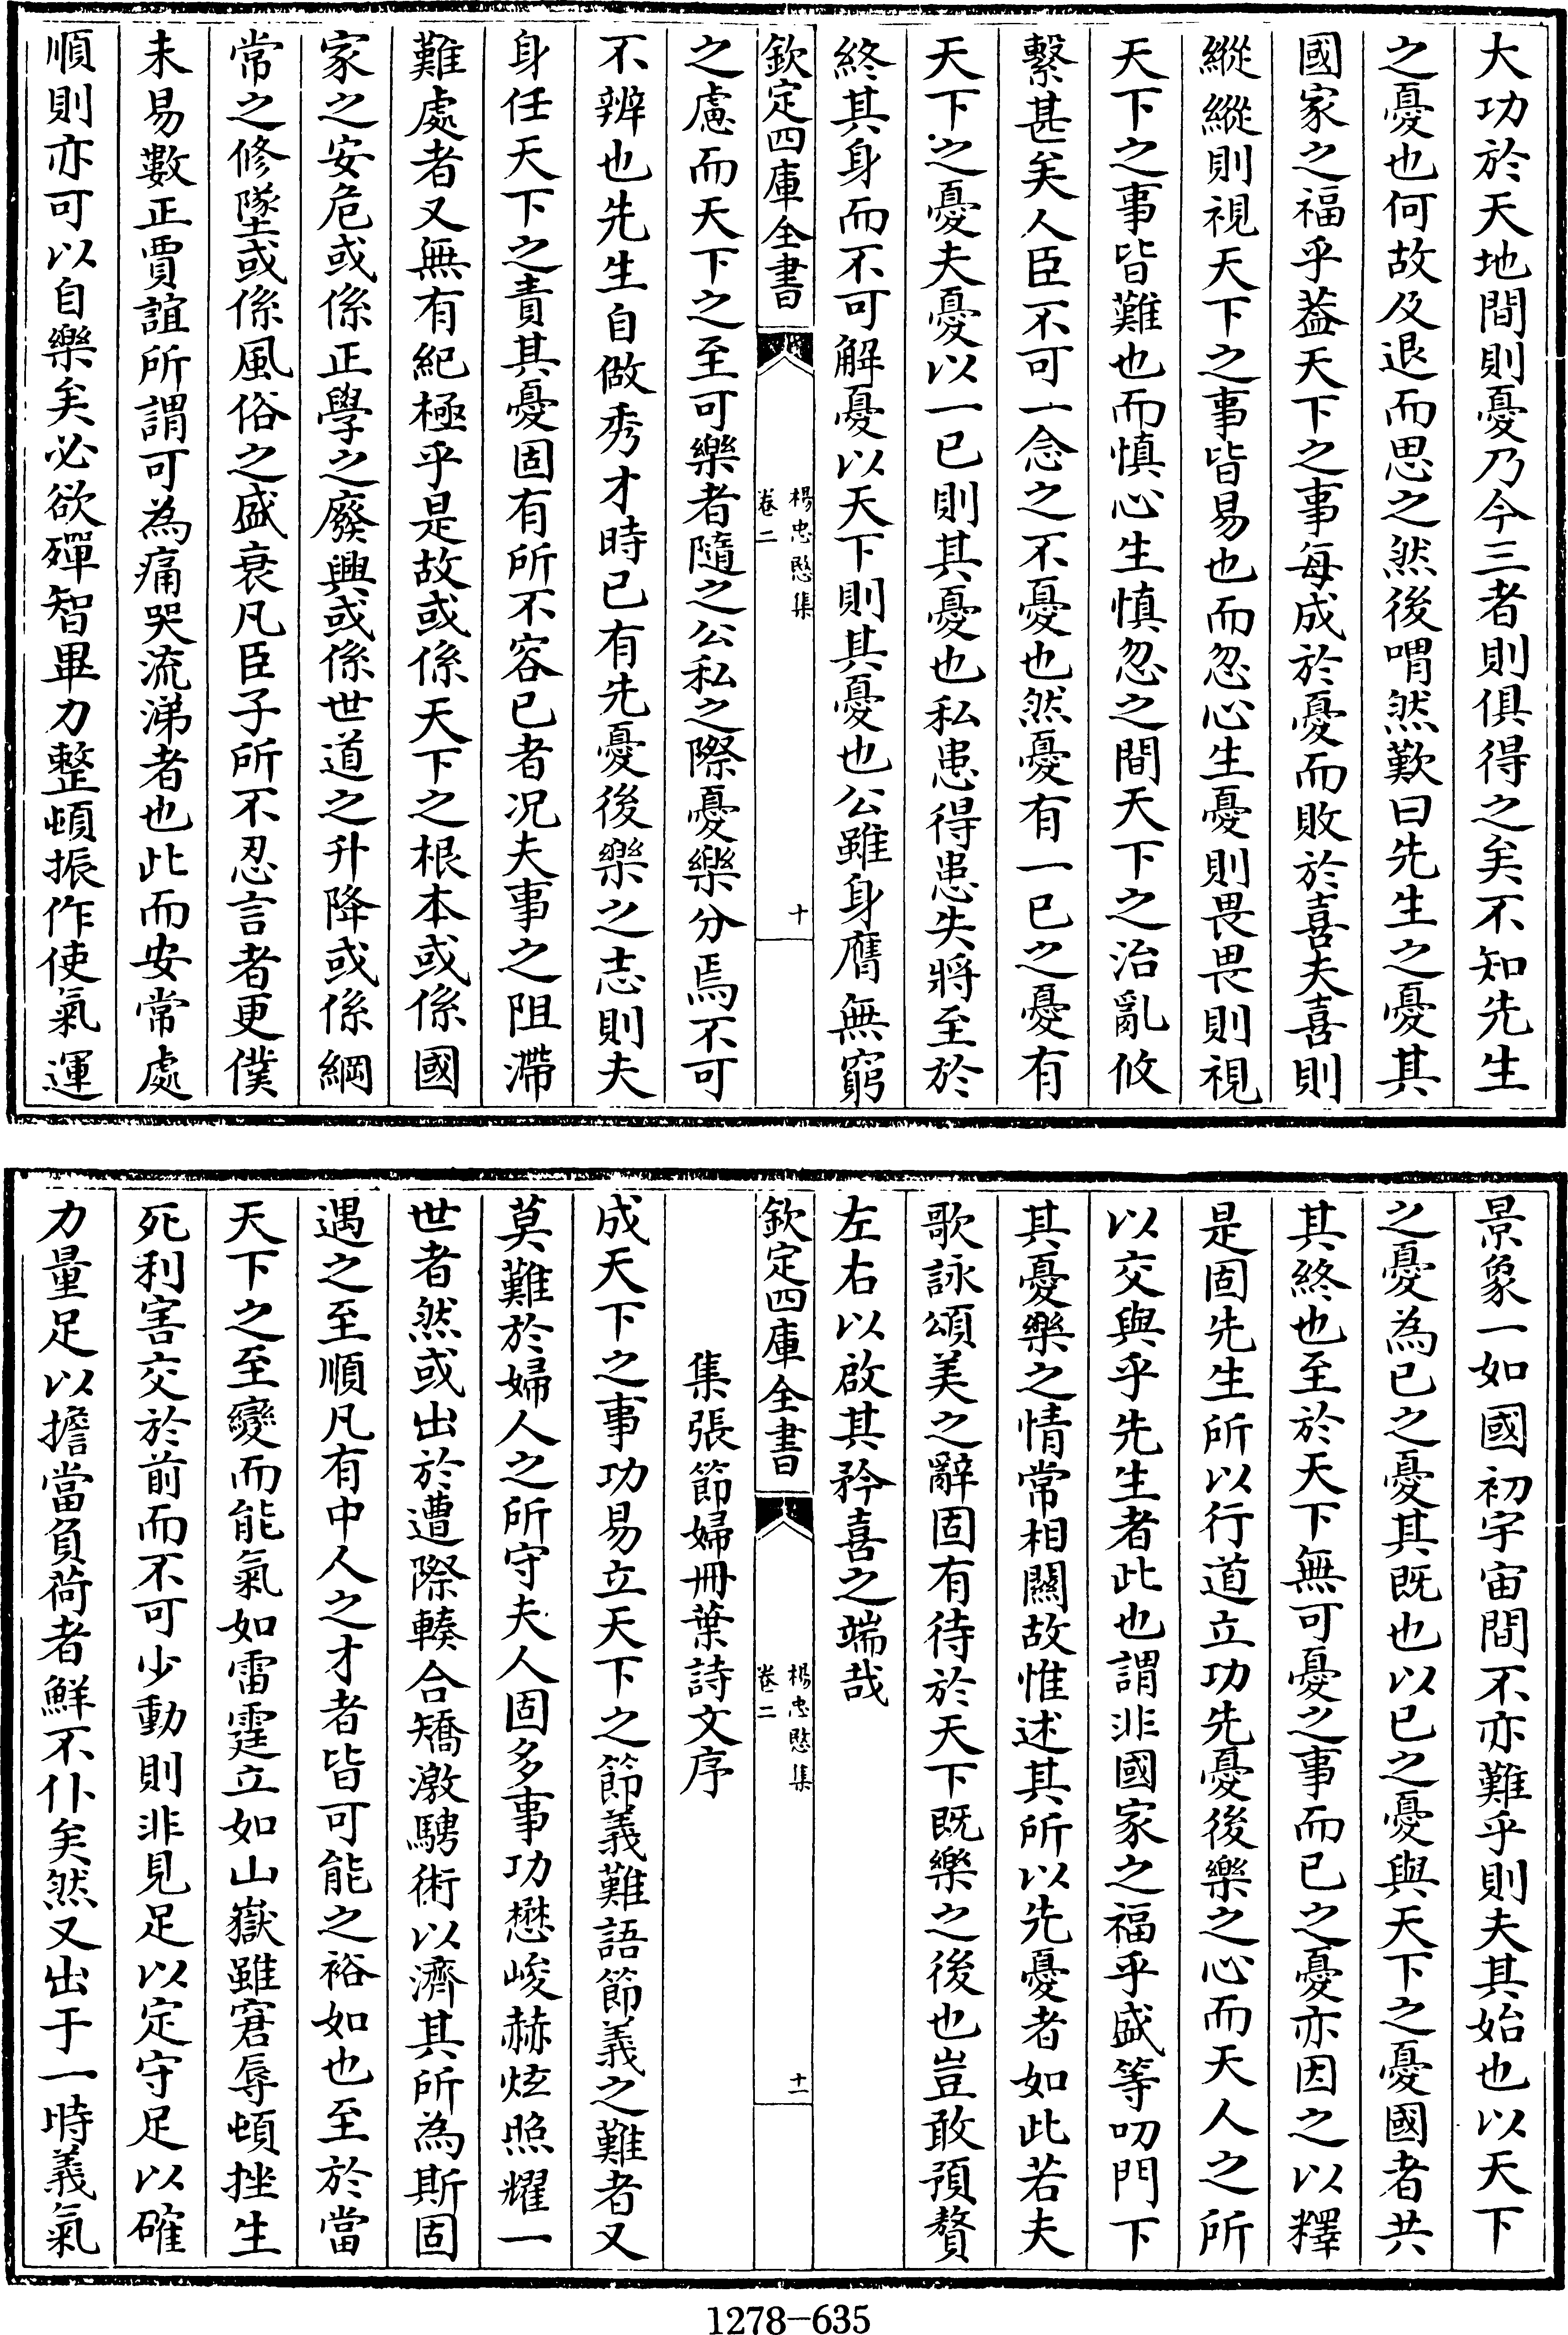 大功於天地間則憂乃今三者則俱得之矣不知先生
之憂也何故及退而思之然後喟然歎曰先生之憂其
國家之福乎葢天下之事每成於憂而敗於喜夫喜則
縱縱則視天下之事皆易也而忽心生憂則畏畏則視
天下之事皆難也而慎心生慎忽之間天下之治亂攸
繫甚矣人臣不可一念之不憂也然憂有一已之憂有
天下之憂夫憂以一已則其憂也私患得患失將至於
終其身而不可解憂以天下則其憂也公雖身膺無窮
欽定四庫全書
楊忠愍集
卷二
十
之慮而天下之至可樂者隨之公私之際憂樂分焉不可
不辨也先生自做秀才時已有先憂後樂之志則夫
身任天下之責其憂固有所不容已者况夫事之阻滯
難處者又無有紀極乎是故或係天下之根本或係國
家之安危或係正學之廢興或係世道之升降或係綱
常之修墜或係風俗之盛衰凡臣子所不忍言者更僕
未易數正賈誼所謂可為痛哭流涕者也此而安常處
順則亦可以自樂矣必欲殫智畢力整頓振作使氣運
景象一如國初宇宙間不亦難乎則夫其始也以天下
之憂為已之憂其既也以已之憂與天下之憂國者共
其終也至於天下無可憂之事而已之憂亦因之以釋
是固先生所以行道立功先憂後樂之心而天人之所
以交與乎先生者此也謂非國家之福乎盛等叨門下
其憂樂之情常相關故惟述其所以先憂者如此若夫
歌詠頌美之辭固有待於天下既樂之後也豈敢預贅
左右以啟其矜喜之端哉
欽定四庫全書
楊忠愍集
卷二
十一
集張節婦冊葉詩文序
成天下之事功易立天下之節義難語節義之難者又
莫難於婦人之所守夫人固多事功懋峻赫炫照耀一
世者然或出於遭際輳合矯激騁術以濟其所為斯固
遇之至順凡有中人之才者皆可能之裕如也至於當
天下之至變而能氣如雷霆立如山嶽雖窘辱頓挫生
死利害交於前而不可少動則非見足以定守足以確
力量足以擔當負荷者鮮不仆矣然又出于一時義氣
1278-635